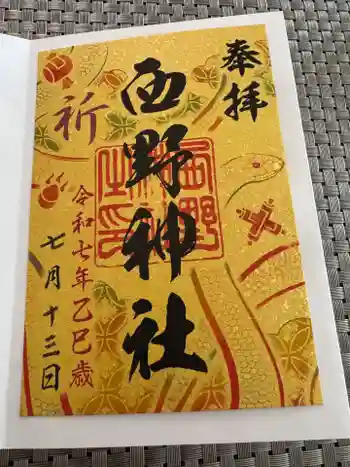 奉拝
西野神社
祈
令和七年乙巳歳
七月十三日